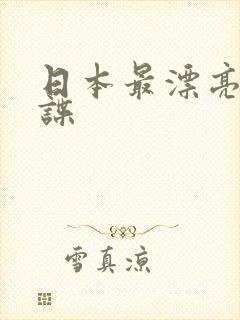 日本最漂亮
諜
雪真凉